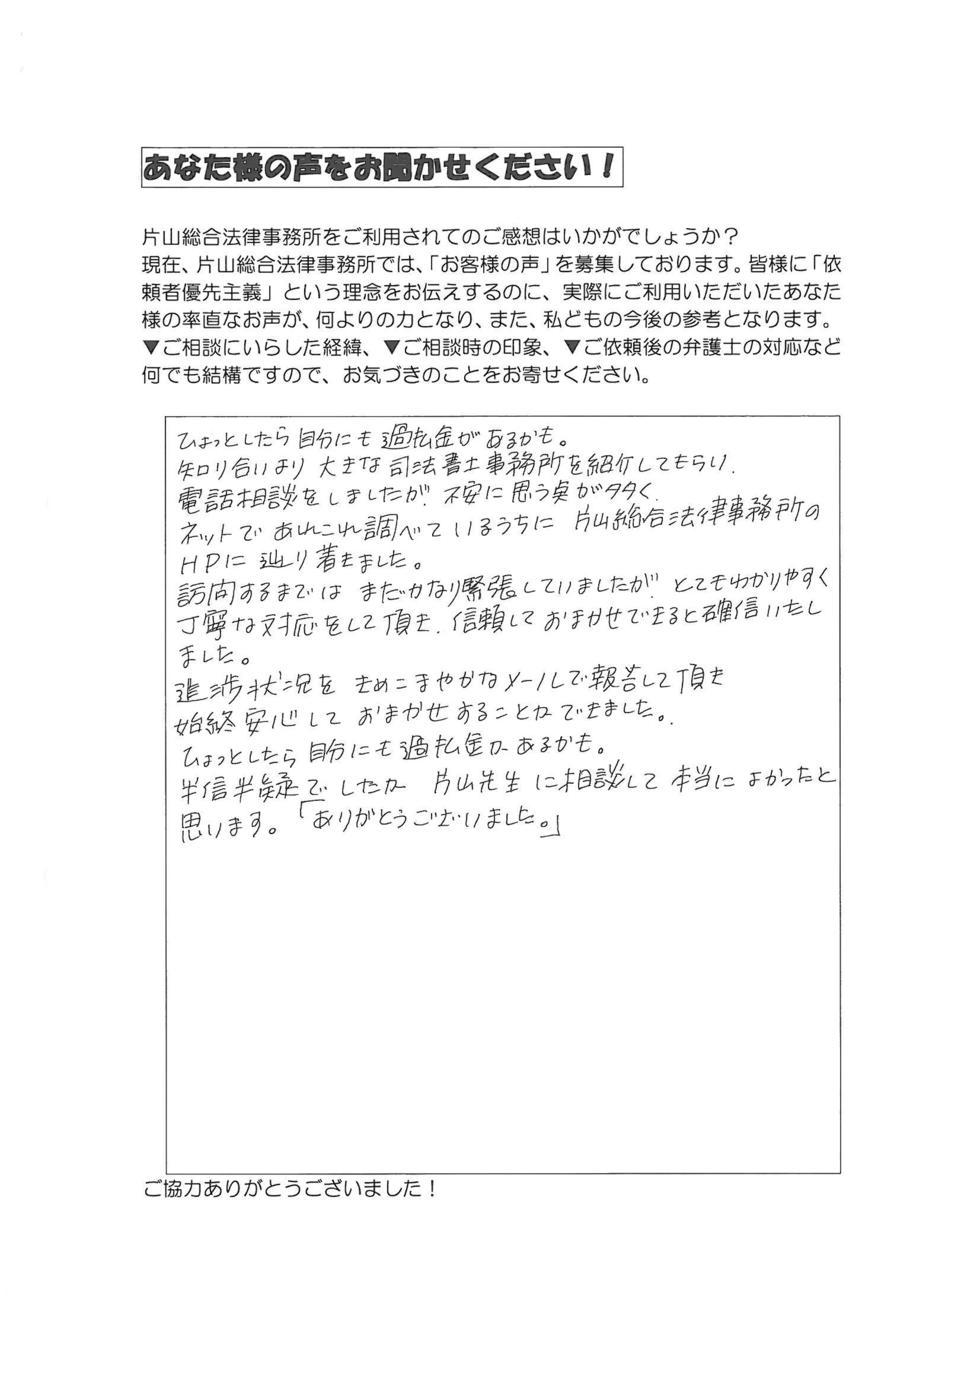 あなた様の声をお聞かせください！
片山総合法律事務所をご利用されてのご感想はいかがでしょうか？
現在、片山総合法律事務所では、「お客様の声」を募集しております。皆様に「依
頼者優先主義」という理念をお伝えするのに、実際にご利用いただいたあなた
様の率直なお声が、何よりの力となり、また、私どもの今後の参考となります。
▼ご相談にいらした経緯、▼ご相談時の印象、▼ご依頼後の弁護士の対応など
何でも結構ですので、お気づきのことをお寄せください。
ひょっとしたら自分にも過払金があるかも。
知り合いより大きな司法書士事務所を紹介してもらい、
電話相談をしましたが、不安に思う点が多く、
ネットであれこれ調べているうちに片山総合法律事務所の
HPに辿り着きました。
訪問するまではまだかなり緊張していましたが、とてもわかりやすく
丁寧な対応をして頂き、信頼しておまかせできると確信いたし
ました。
進渉状況をきめこまやかなメールで報告して頂き
始終安心しておまかせすることができました。
ひょっとしたら自分にも過払金があるかも。
半信半疑でしたが片山先生に相談して本当によかったと
思います。「ありがとうございました。」
ご協力ありがとうございました！